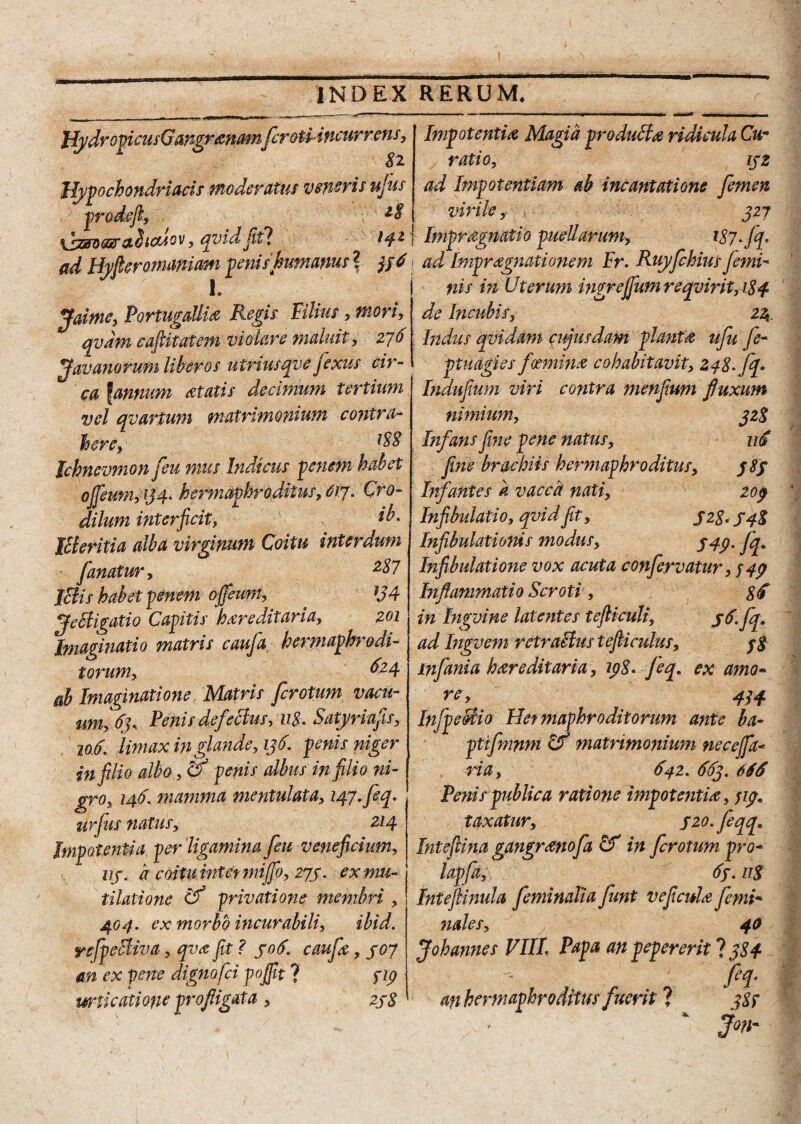 INDEX RERUM.
HydropicusGangrænam scroti-incurrens,
82
Hypochondriacis moderatus veneris usus
prodest, 28
qvid sit? 142
ad Hysteromaniam penis humanus? 356
I.
Jaime, Portugalliæ Regis Filius, mori,
qvàm castitatem violare maluit, 276
Javanorum liberos utriusqve sexus cir-
ca annum ætatis decimum tertium
vel qvartum matrimonium contra-
here, 188
Ichnevmon seu mus Indicus penem habet
osseum, 134. hermaphroditus, 617. Cro-
dilum interficit, ib.
Icteritia alba virginum Coitu interdum
sanatur, 287
Ictis habet penem osseum, 134
Jectigatio Capitis hæreditaria, 201
Imaginatio matris causa hermaphrodi-
torum, 624
ab Imaginatione Matris scrotum vacu-
um, 63. Penis defectus, 118. Satyriasis,
106. limax in glande, 136. penis niger
in filio albo, & penis albus in filio ni-
gro, 146. mamma mentulata, 147. seq.
ursus natus, 214
Impotentia per ligamina seu veneficium,
115. à coitu intermisso, 275. ex mu-
tilatione & privatione membri,
404. ex morbo incurabili, ibid.
respectiva, qvæ sit? 506. causæ, 507
an ex pene dignosci possit? 519
urticatione profligata, 258
Impotentiæ Magiâ productæ ridicula Cu-
ratio, 152
ad Impotentiam ab incantatione semen
virile, 327
Imprægnatio puellarum, 187. sq.
ad Imprægnationem Fr. Ruyschius semi-
nis in Uterum ingressum reqvirit, 184
de Incubis, 22.
Indus qvidam cujusdam plantæ usu se-
ptuagies fœminæ cohabitavit, 248. sq.
Indusium viri contra mensium fluxum
nimium, 328
Infans sine pene natus, 116
sine brachiis hermaphroditus, 585
Infantes à vaccâ nati, 209
Infibulatio, qvid sit, 528. 548
Infibulationis modus, 549. sq.
Infibulatione vox acuta conservatur, 549
Inflammatio Scroti, 86
in Ingvine latentes testiculi, 56. sq.
ad Ingvem retractus testiculus, 58
insania hæreditaria, 198. seq. ex amo-
re, 434
Inspectio Hermaphroditorum ante ba-
ptismnm & matrimonium necessa-
ria, 642. 663. 666
Penis publica ratione impotentiæ, 519.
taxatur, 520. seqq.
Intestina gangrænosa & in scrotum pro-
lapsa, 65. 118
Intestinula seminalia sunt vesiculæ semi-
nales, 40
Johannes VIII. Papa an pepererit? 384
seq.
an hermaphroditus fuerit? 385
Jon-